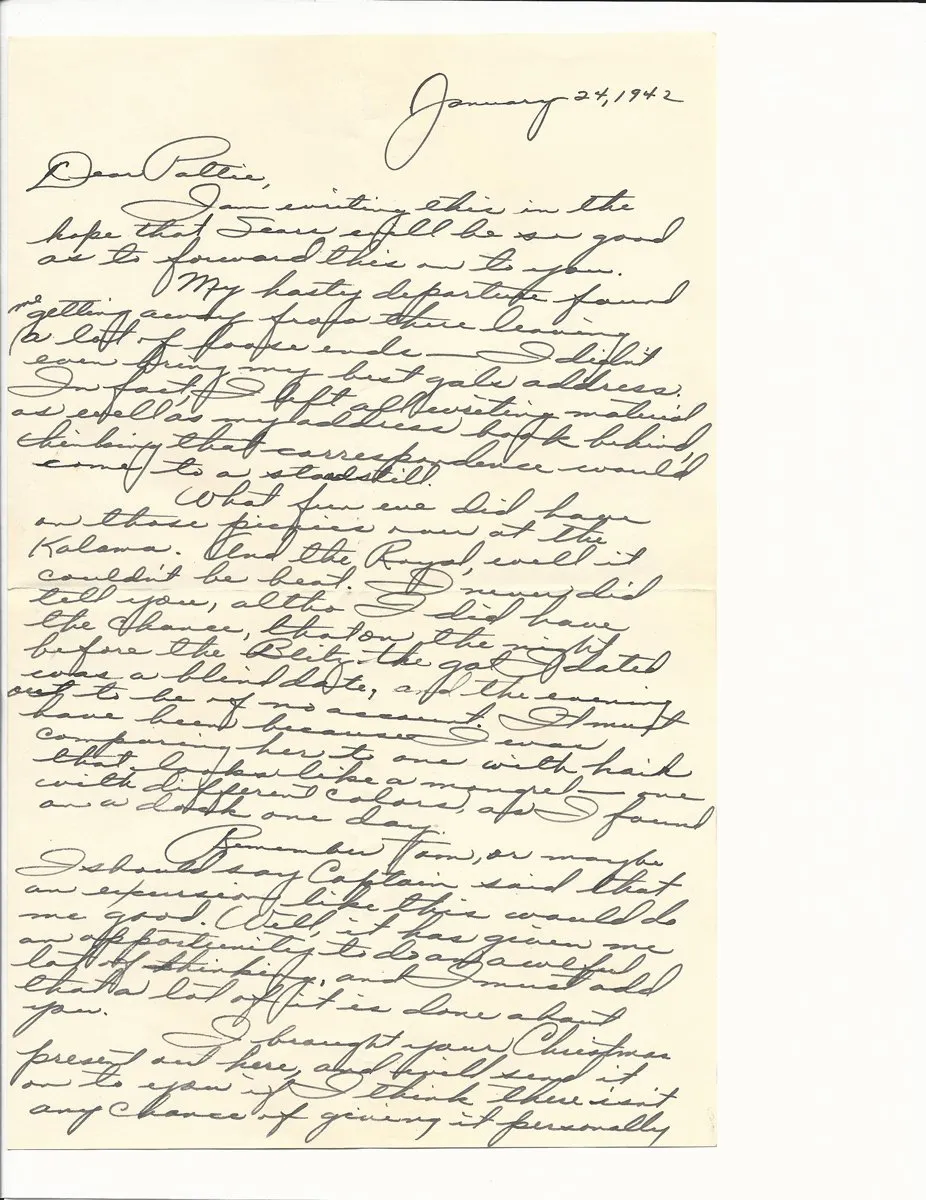 January 24, 1942
Dear Pattie,
I am writing this in the
hope that Sears will be so good
as to forward this on to you.
My hasty departure found
me getting away from there leaving
a lot of loose ends — I didn't
even bring my best gals address.
In fact, I left all writing material
as well as my address book behind,
thinking that correspondence would
come to a standstill.
What fun we did have
on those picnics over at the
Kalama. And the Royal, well it
couldn't be beat. I never did
tell you, altho I did have
the chance, that on the night
before the Blitz the gal I dated
was a blind date, and the evening
out to be of no account. It must
have been because I was
comparing her to one with hair
that looks like a mongrel — one
with different colors, as I found
on a dock one day.
Remember Tom, or maybe
I should say Captain said that
an excursion like this would do
me good. Well, it has given me
an opportunity to do an aweful
lot of thinking, and I must add
that a lot of it is done about
you.
I brought your Christmas
present out here, and will send it
on to you if I think there isn't
any chance of giving it personally